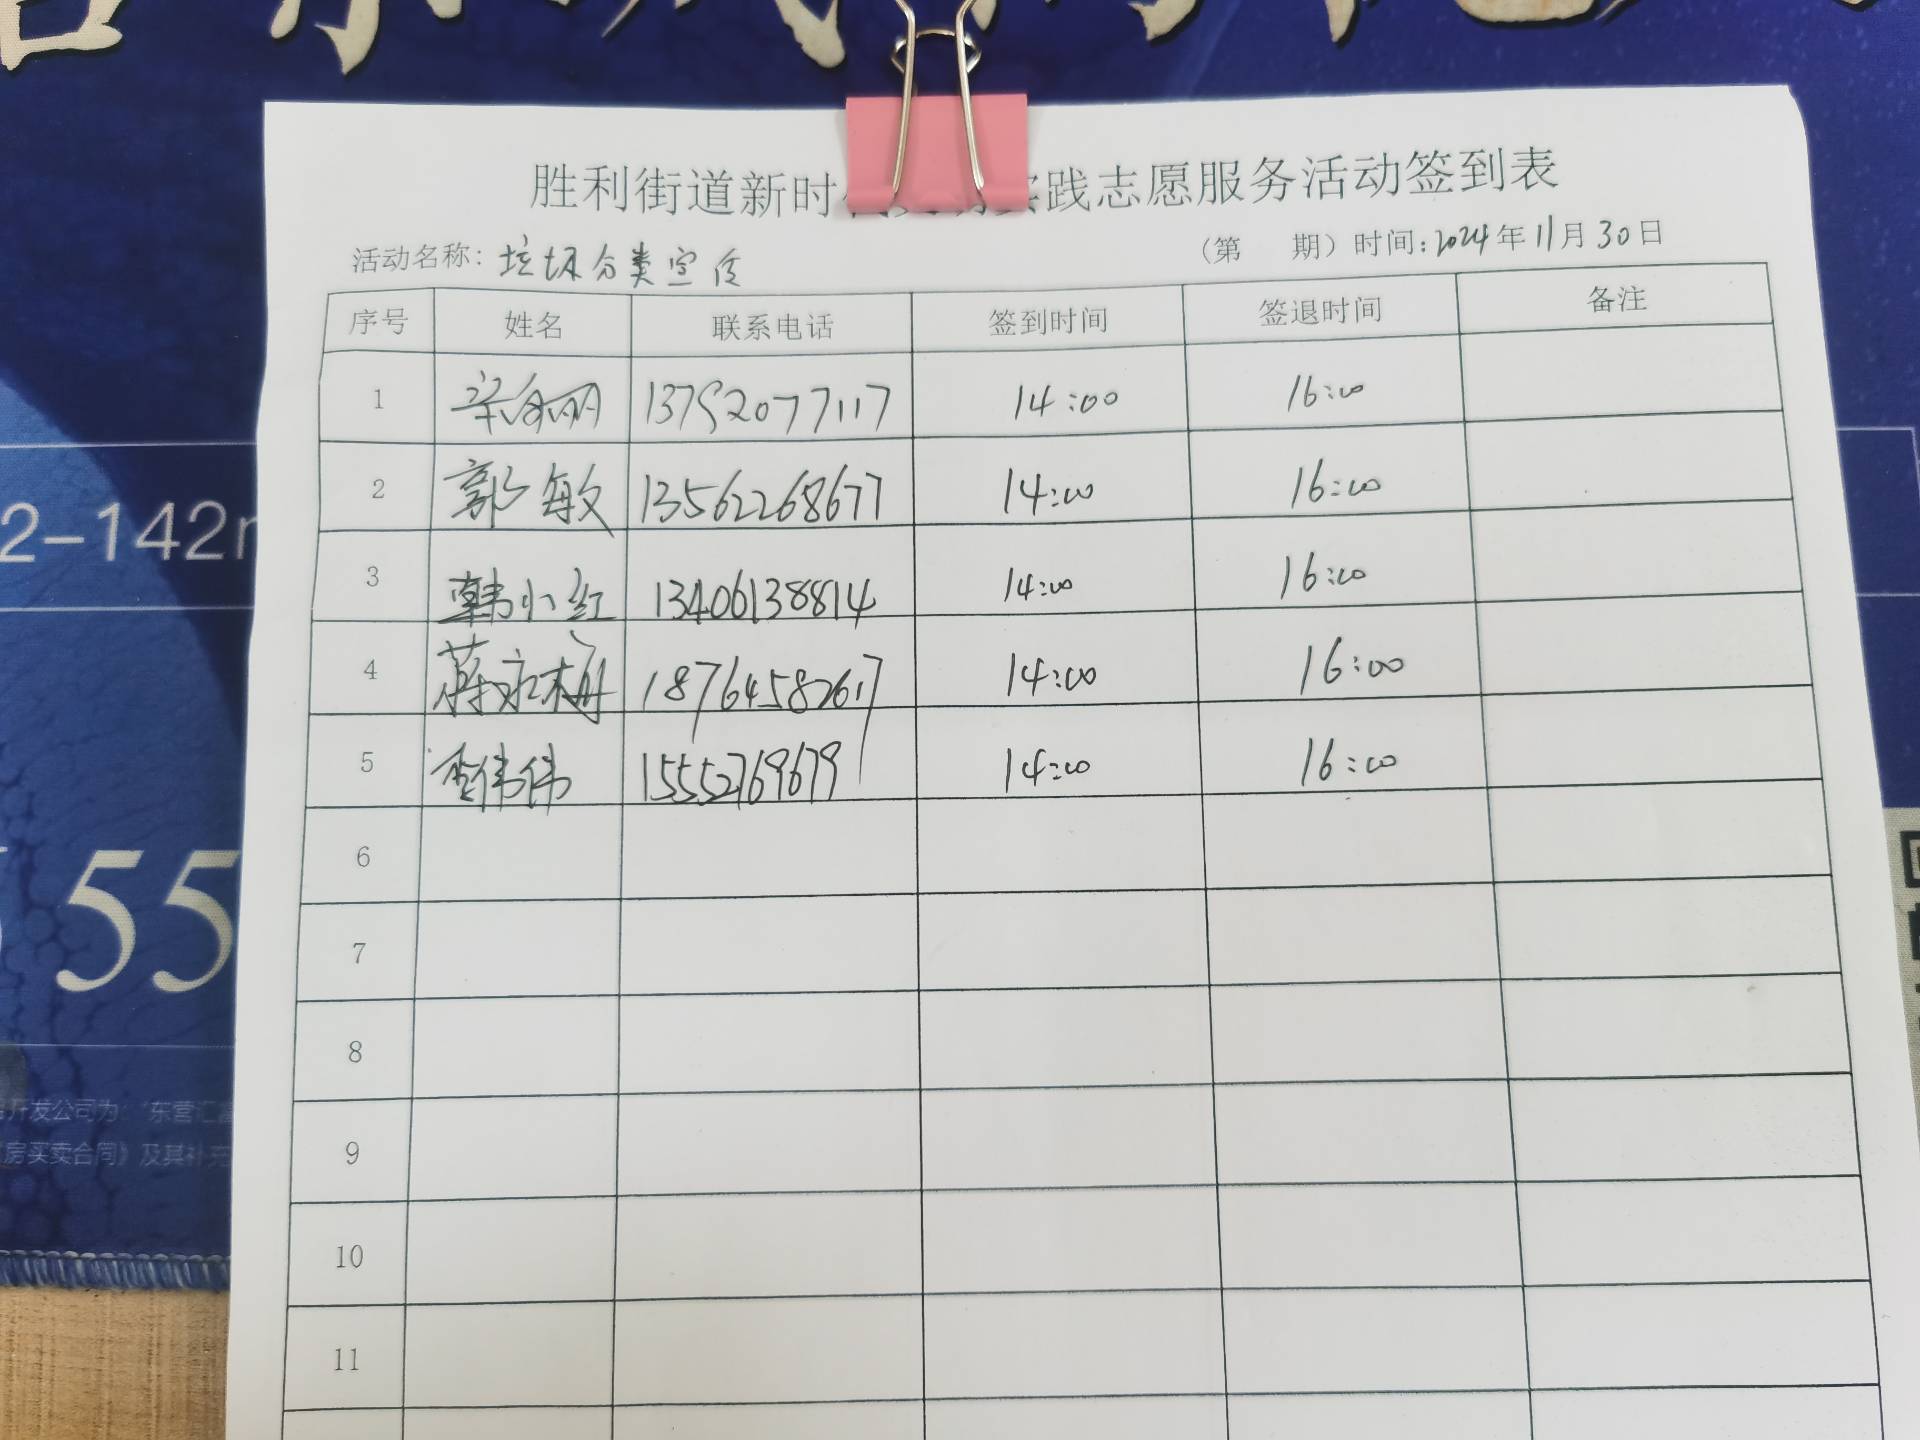 胜利街道新时 实践志愿服务活动签到表
活动名称：垃圾分类宣传 （第 期）时间：2024年11月30日
序号 姓名 联系电话 签到时间 签退时间 备注
1 13792077117 14:00 16:00
2 郭敏 13562268677 14:00 16:00
3 韩小红 13406138814 14:00 16:00
4 蒋永梅 18764582617 14:00 16:00
5 李伟伟 15552769679 14:00 16:00
6
7
8
9
10
11
2-142m
55
开发公司为：“东营汇
房买卖合同》及其补充